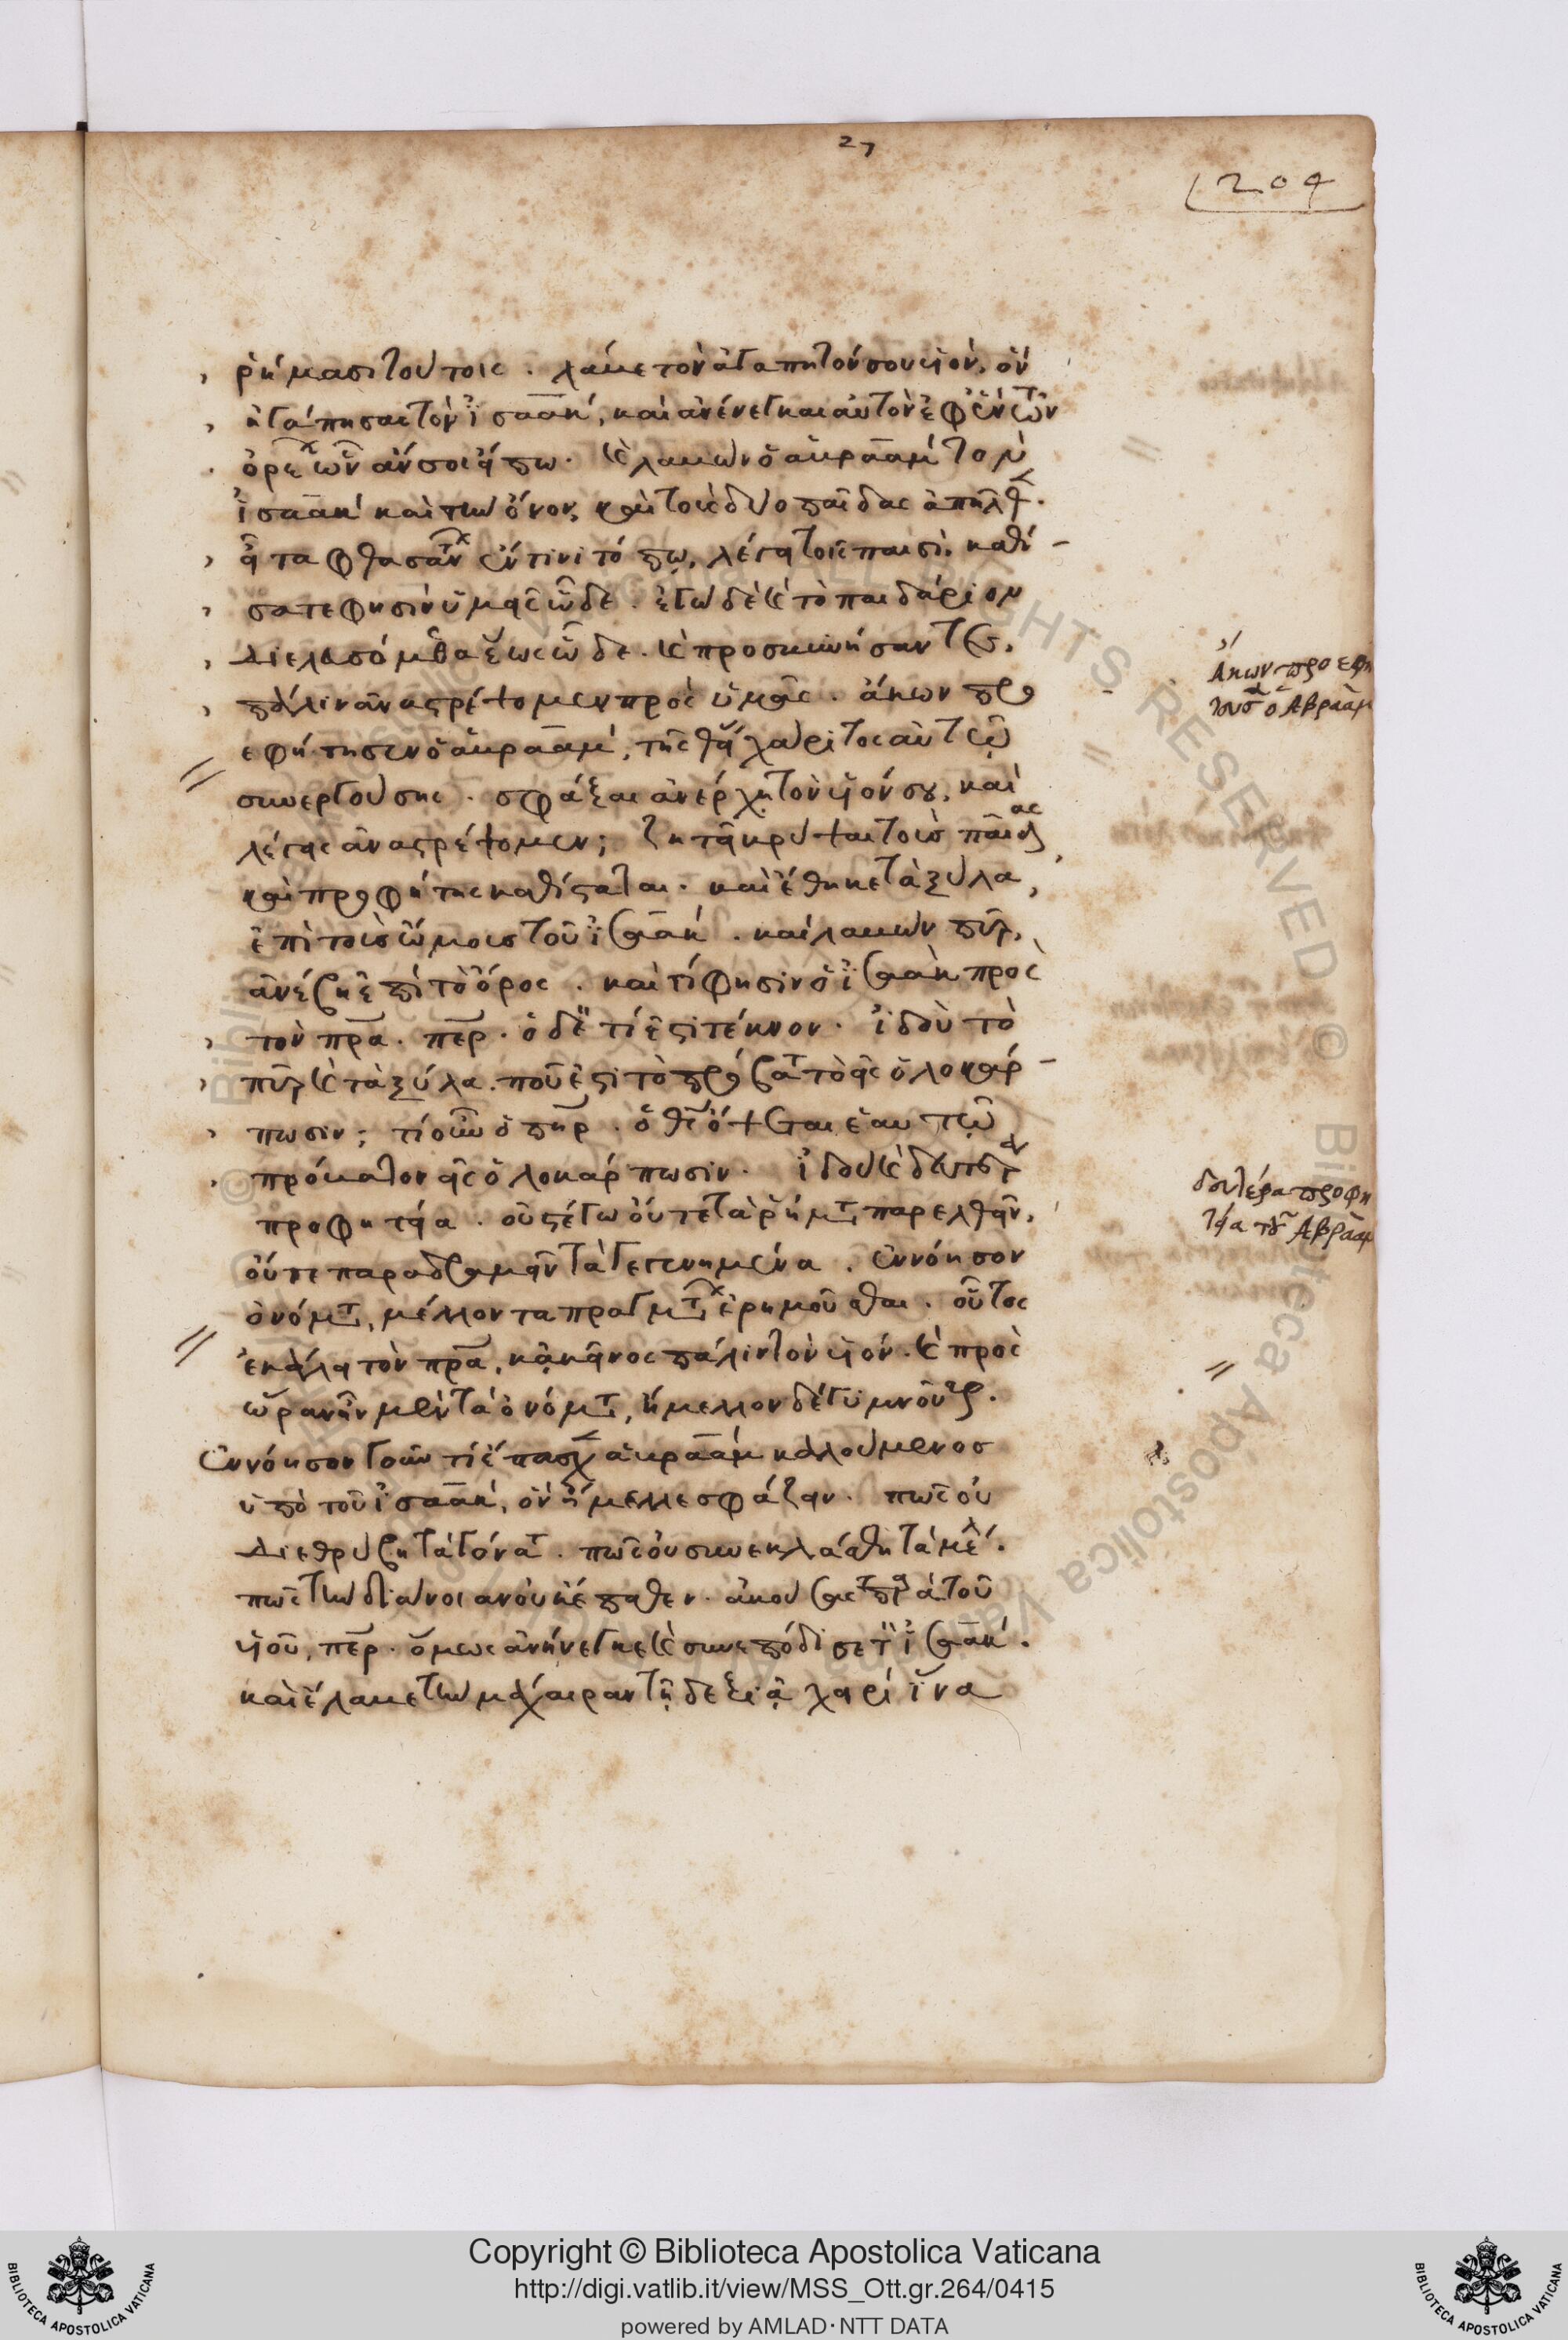 27
204
ῥήμασι τούτοις. λάβε τὸν ἀγαπητόν σου υἱόν, ὃν
ἠγάπησας τὸν ἰσαάκ, καὶ ἀνένεγκαι αὐτὸν ἐφ' ἓν τῶν
ὀρέων ὧν ἄν σοι εἴπω. καὶ λαβὼν ὁ ἀβραὰμ τὸν
ἰσαὰκ καὶ τὴν ὄνον, καὶ τοὺς δύο παῖδας ἀπῆλθεν.
εἶτα φθάσαντες ἔν τινι τόπω, λέγει τοῖς παισὶ, καθί-
σατε φησὶν ὑμεῖς ὧδε. ἐγὼ δὲ καὶ τὸ παιδάριον
διελευσόμεθα ἕως ὧδε. καὶ προσκυνήσαντες,
πάλιν ἀναστρέψομεν πρὸς ὑμᾶς. ἄκων προ
εφήτησεν ὁ ἀβραάμ, τῆς θείας χάριτος αὐτῶ
συνεργούσης. σφάξαι ἀνέρχη τὸν υἱόν σου, καὶ
λέγεις ἀναστρέψομεν; ζητεῖ κρύψαι τοὺς παῖδας
καὶ προφήτης καθίσταται. καὶ ἔθηκε τὰ ξύλα,
ἐπὶ τοὺς ὤμους τοῦ ἰσαάκ. καὶ λαβὼν πῦρ,
ἀνέβη ἐπὶ τὸ ὄρος. καὶ τί φησὶν ὁ ἰσαὰκ πρὸς
τὸν πρα. περ. ὁ δὲ τί ἐστι τέκνον. ἰδοὺ τὸ
πῦρ καὶ τὰ ξύλα. ποῦ ἐστι τὸ πρόβατον τὸ εἰς ὁλοκάρ-
πωσιν; τί οὖν ὁ πηρ. ὁ θς ὄψεται ἑαυτῶ
πρόβατον εἰς ὁλοκάρπωσιν. ἰδοὺ καὶ δευτέρα
προφητεία. οὐ στέγω οὔτε τὰ ῥήματα παρελθεῖν,
οὔτε παραδραμεῖν τὰ γεγενημένα. ἐννόησον
ὀνόματα, μέλλοντα πραγμάτων ἐρημοῦσθαι. οὗτος
ἐκάλει τὸν πρα, κἀκεῖνος πάλιν τὸν υἱόν. καὶ πρὸς
ὥραν ἦν μὲν τὰ ὀνόματα, ἤμελλον δὲ γυμνοῦσθαι.
ἐννόησον γοῦν τί ἔπασχεν ἀβραὰμ καλούμενος
ὑπὸ τοῦ ἰσαάκ, ὃν ἤμελλε σφάζειν. πῶς οὐ
διεθρύβη τὰ γόνατα. πῶς οὐ συνεκλάσθη τὰ μέλη.
πῶς τὴν διάνοιαν οὐκ ἔπαθεν. ἀκούσας παρὰ τοῦ
υἱοῦ, περ. ὅμως ἀνήνεγκε καὶ συνεπόδισε τὸν ἰσαάκ.
καὶ ἔλαβε τὴν μάχαιραν τῆ δεξιᾷ χειρί ἵνα
ἄκων προεφη
τευσεν ὁ Ἀβραὰμ
δευτέρα προφη
τεία τοῦ Ἀβραὰμ
Copyright © Biblioteca Apostolica Vaticana
http://digi.vatlib.it/view/MSS_Ott.gr.264/0415
powered by AMLAD·NTT DATA